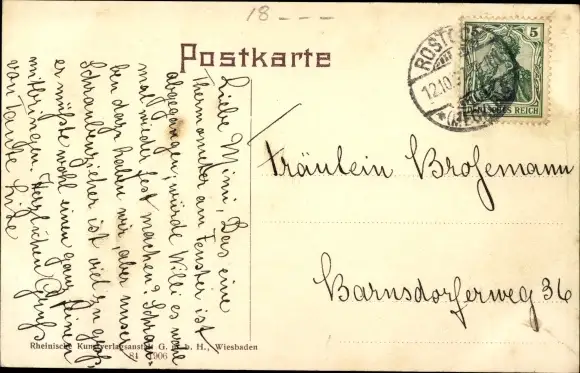 18 - - -
Postkarte
ROSTOCK
12.10.
(MECKL
5
DEUTSCHES REICH
Fräulein Brosemann
Barnsdorferweg 36
Liebe Mimi, Das eine
Thermometer am Fenster ist
abgegangen, würde Willi es wohl
mal wieder fest machen? Schrau-
ben dazu haben wir, aber unser
Schraubenzieher ist viel zu groß,
er müßte wohl einen ganz feinen
mitbringen. Herzlichen Gruß
von Tante Lite
Rheinische Kunstverlagsanstalt G. m. b. H., Wiesbaden
81 1906